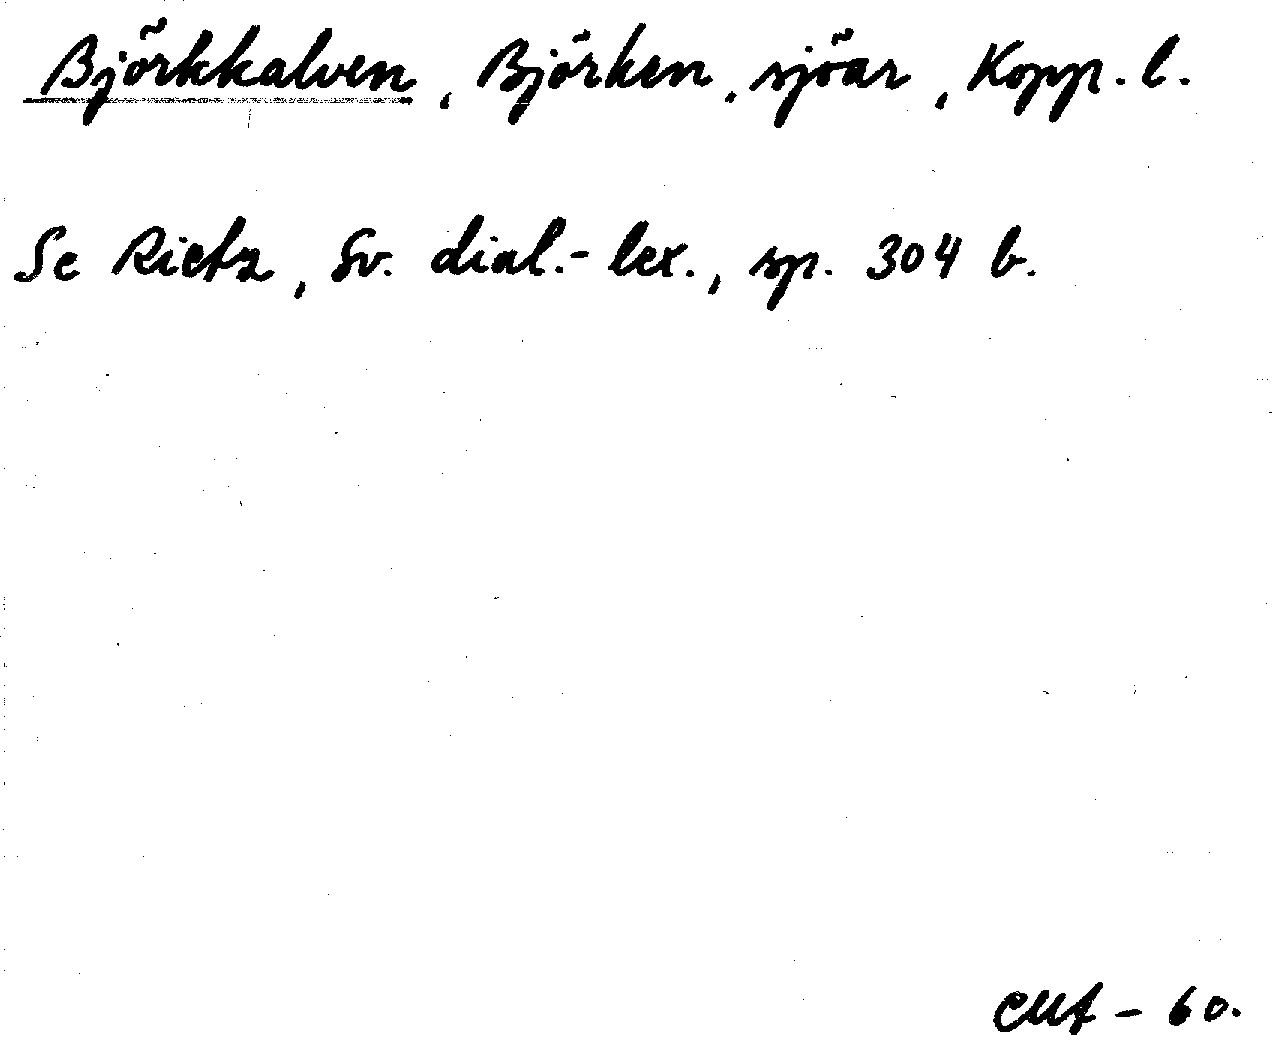 Björkkalven, Björken, sjöar, Kopp. l.
Se Rietz, Sv. dial.-lex., sp. 304 b.
- 60.